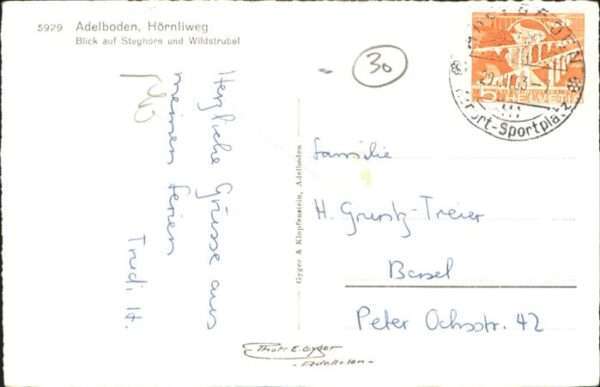 5929 Adelboden, Hörnliweg
Blick auf Steghorn und Wildstrubel
Herzliche Grüsse aus
meinen Ferien
Trudi H.
Gyger & Klopfenstein, Adelboden
30
ADELBODEN
Kurort-Sportplatz
5
HELVETIA
Familie
H. Treier
Basel
Peter Ochsstr. 42
Phot. E. Gyger
- Adelboden -